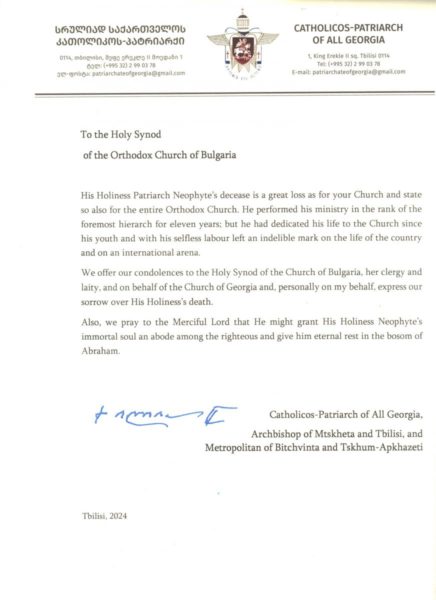 ᲡᲠᲣᲚᲘᲐᲓ ᲡᲐᲥᲐᲠᲗᲕᲔᲚᲝᲡ
ᲙᲐᲗᲝᲚᲘᲙᲝᲡ-ᲞᲐᲢᲠᲘᲐᲠᲥᲘ
0114, თბილისი, მეფე ერეკლე II მოედანი 1
ტელ: (+995 32) 2 99 03 78
ელ-ფოსტა: patriarchateofgeorgia@gmail.com
CATHOLICOS-PATRIARCH
OF ALL GEORGIA
1, King Erekle II sq. Tbilisi 0114
Tel: (+995 32) 2 99 03 78
E-mail: patriarchateofgeorgia@gmail.com
To the Holy Synod
of the Orthodox Church of Bulgaria
His Holiness Patriarch Neophyte's decease is a great loss as for your Church and state
so also for the entire Orthodox Church. He performed his ministry in the rank of the
foremost hierarch for eleven years; but he had dedicated his life to the Church since
his youth and with his selfless labour left an indelible mark on the life of the country
and on an international arena.
We offer our condolences to the Holy Synod of the Church of Bulgaria, her clergy and
laity, and on behalf of the Church of Georgia and, personally on my behalf, express our
sorrow over His Holiness's death.
Also, we pray to the Merciful Lord that He might grant His Holiness Neophyte's
immortal soul an abode among the righteous and give him eternal rest in the bosom of
Abraham.
Catholicos-Patriarch of All Georgia,
Archbishop of Mtskheta and Tbilisi, and
Metropolitan of Bitchvinta and Tskhum-Apkhazeti
Tbilisi, 2024